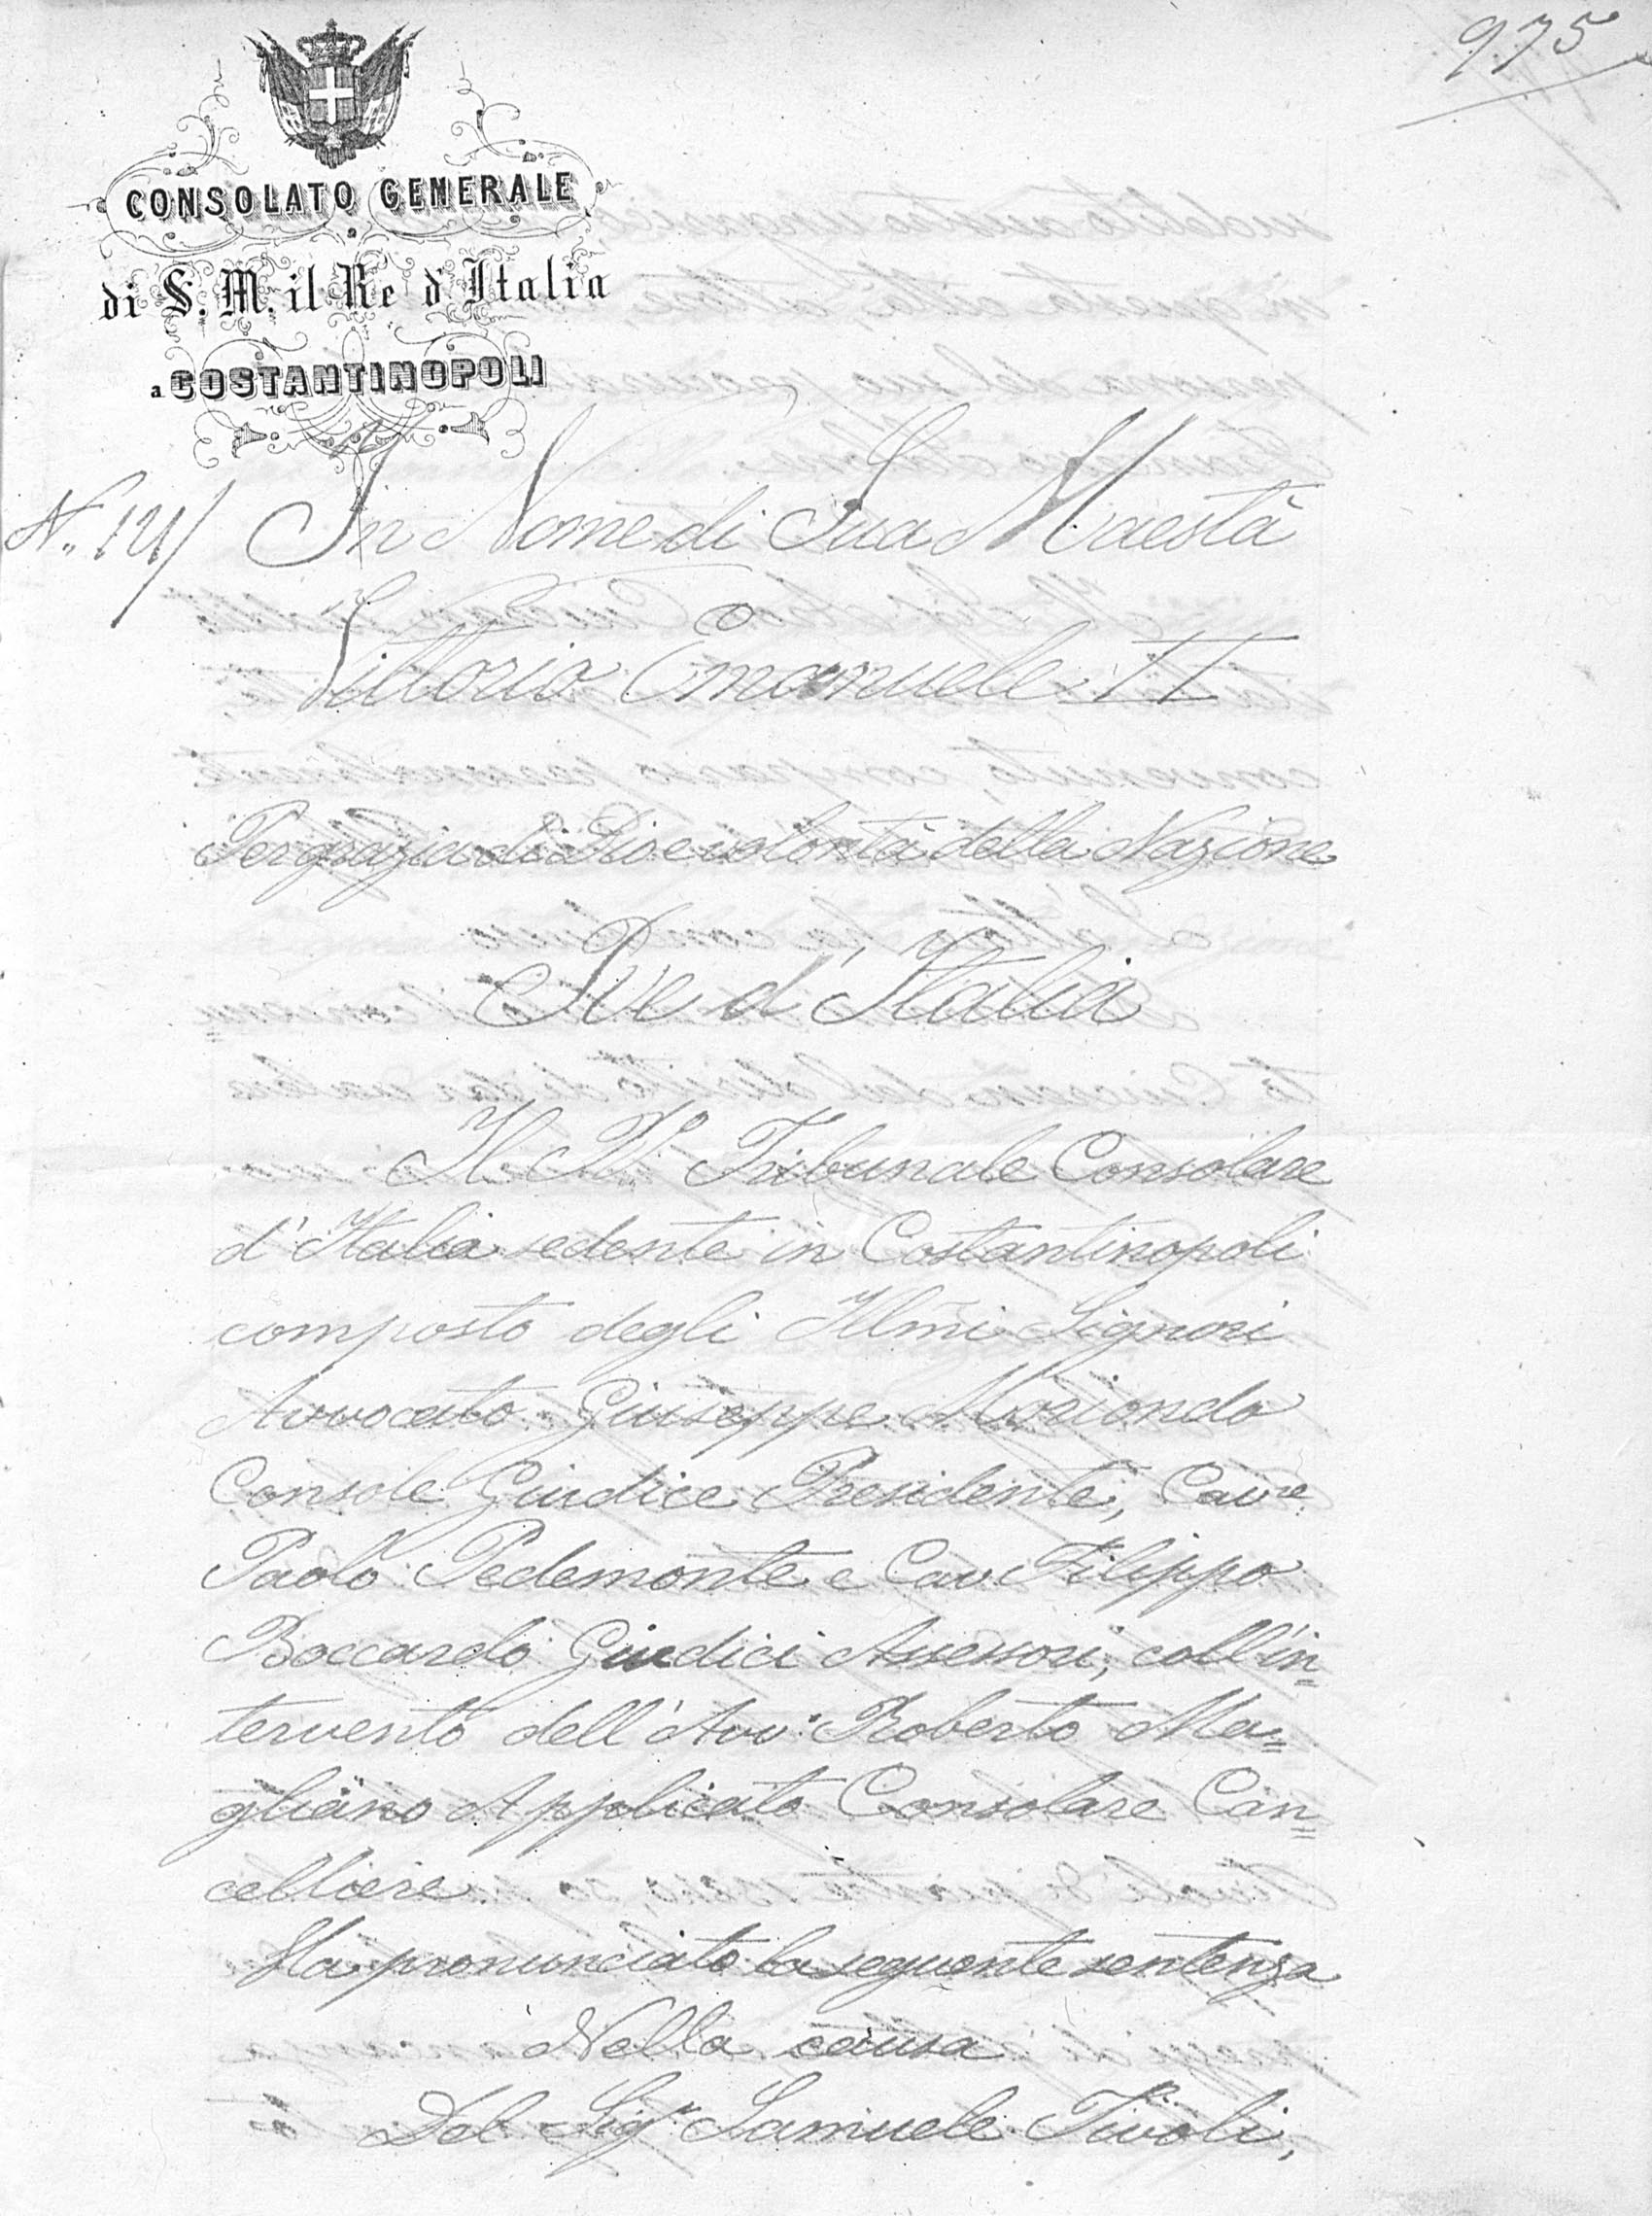 975
CONSOLATO GENERALE
di S. M. il Re d'Italia
a COSTANTINOPOLI
N. 141
In Nome di Sua Maestà
Vittorio Emanuele II
Per grazia di Dio e volontà della Nazione
Re d'Italia
Il R. Tribunale Consolare
d'Italia sedente in Costantinopoli
composto degli Ill̃mi Signori
Avvocato Giuseppe Moriondo
Console Giudice Presidente, Cav.re
Paolo Pedemonte e Cav. Filippo
Boccardo Giudici Assessori, coll'in=
tervento dell'Avv. Roberto Ma=
gliano Applicato Consolare Can=
celliere.
Ha pronunciato la seguente sentenza
Nella causa
Del Sig.r Samuele Tivoli,